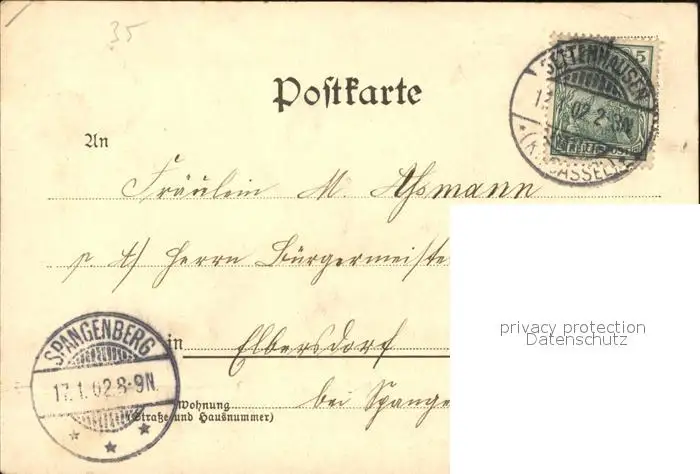 35
5
SETTENHAUSEN
17.1.02 2-3N.
(Kr. CASSEL)
Postkarte
An
Fräulein M. Assmann
p. A/ Herrn Bürgermeiste
privacy protection
Datenschutz
SPANGENBERG
17.1.02.8-9N.
in Elbersdorf
bei Spange
Wohnung
(Straße und Hausnummer)